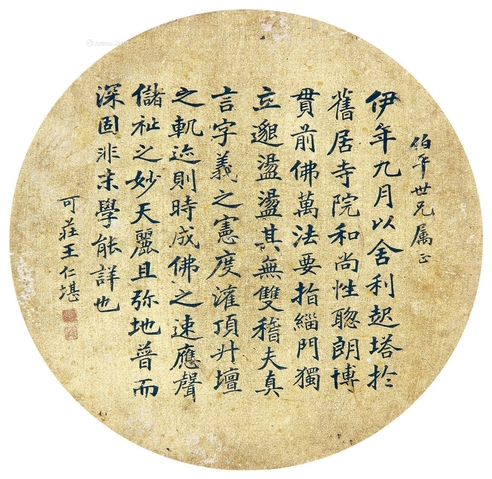 伯午世兄属正
伊年九月以舍利起塔於
舊居寺院和尚性聰朗博
貫前佛萬法要指緇門獨
立邈盪盪其無雙稽夫真
言字義之憲度灌頂升壇
之軌迹則時成佛之速應聲
儲祉之妙天麗且弥地普而
深固非末學能詳也
可莊王仁堪